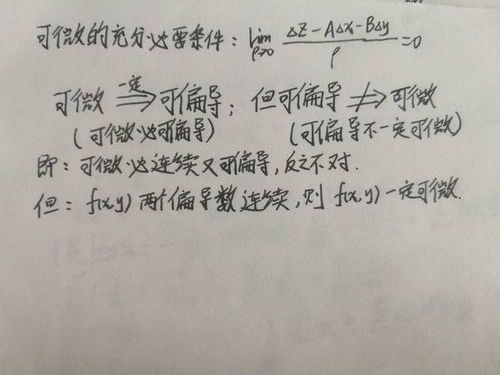 可微的充分必要条件: lim ρ→0 (ΔZ-AΔx-BΔy)/ρ =0
可微 一定⇒ 可偏导; 但可偏导 ⇏ 可微
(可微必可偏导) (可偏导不一定可微)
即: 可微必连续又可偏导, 反之不对.
但: f(x,y) 两个偏导数连续, 则 f(x,y) 一定可微.